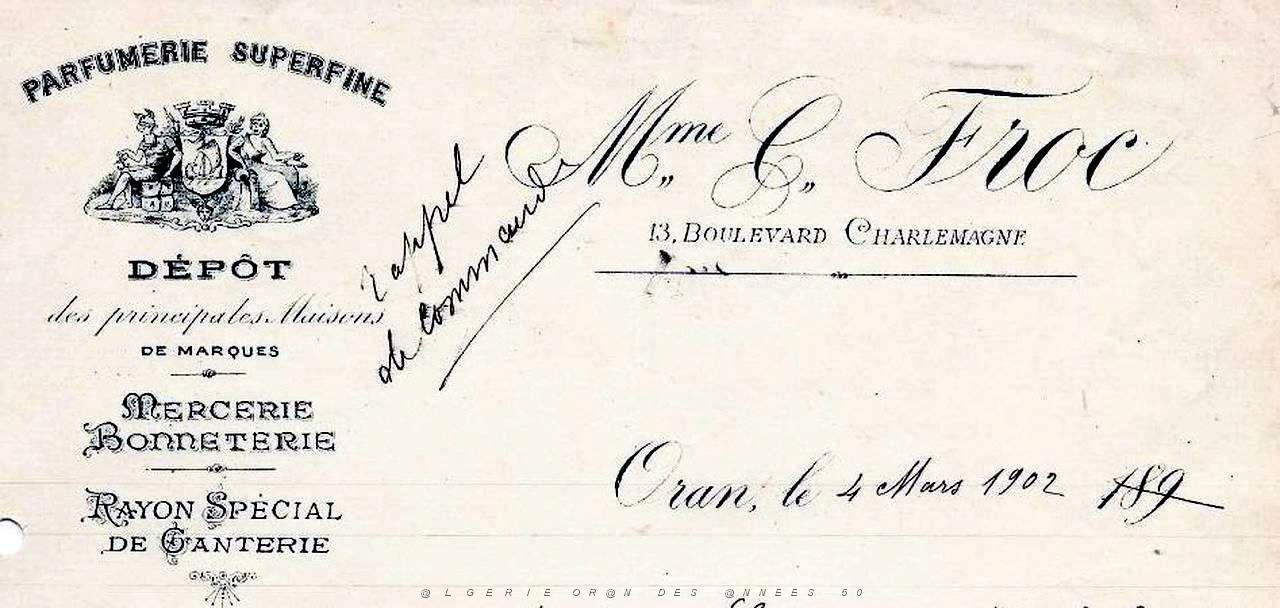 PARFUMERIE SUPERFINE
DÉPÔT
des principales Maisons
DE MARQUES
MERCERIE
BONNETERIE
RAYON SPÉCIAL
DE GANTERIE
rappel
de commande
Mme C. Froc
13, BOULEVARD CHARLEMAGNE
Oran, le 4 Mars 1902 189
@LGERIE OR@N DES @NNEES 50